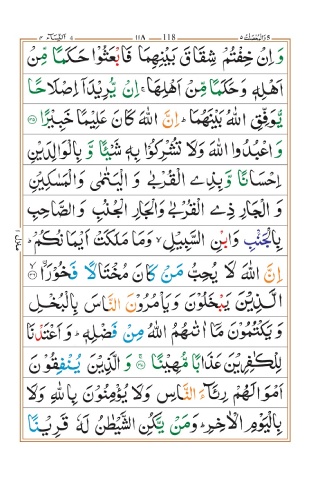 118 ١١٨
وَاِنْ خِفْتُمْ شِقَاقَ بَيْنِهِمَا فَابْعَثُوْا حَكَمًا مِّنْ
اَهْلِهٖ وَحَكَمًا مِّنْ اَهْلِهَا ۚ اِنْ يُّرِيْدَآ اِصْلَاحًا
يُّوَفِّقِ اللّٰهُ بَيْنَهُمَا ؕ اِنَّ اللّٰهَ كَانَ عَلِيْمًا خَبِيْرًا ﴿۳۵﴾
وَاعْبُدُوا اللّٰهَ وَلَا تُشْرِكُوْا بِهٖ شَيْئًا وَّ بِالْوَالِدَيْنِ
اِحْسَانًا وَّ بِذِي الْقُرْبٰى وَالْيَتٰمٰى وَالْمَسٰكِيْنِ
وَ الْجَارِ ذِي الْقُرْبٰى وَالْجَارِ الْجُنُبِ وَ الصَّاحِبِ
بِالْجَنْۢبِ وَابْنِ السَّبِيْلِ ۙ وَمَا مَلَكَتْ اَيْمَانُكُمْ ؕ
اِنَّ اللّٰهَ لَا يُحِبُّ مَنْ كَانَ مُخْتَالًا فَخُوْرًا ﴿۳۶﴾
الَّذِيْنَ يَبْخَلُوْنَ وَ يَاْمُرُوْنَ النَّاسَ بِالْبُخْلِ
وَ يَكْتُمُوْنَ مَاۤ اٰتٰىهُمُ اللّٰهُ مِنْ فَضْلِهٖ ؕ وَ اَعْتَدْنَا
لِلْكٰفِرِيْنَ عَذَابًا مُّهِيْنًا ﴿۳۷﴾ وَ الَّذِيْنَ يُنْفِقُوْنَ
اَمْوَالَهُمْ رِئَآءَ النَّاسِ وَلَا يُؤْمِنُوْنَ بِاللّٰهِ وَلَا
بِالْيَوْمِ الْاٰخِرِ ؕ وَمَنْ يَّكُنِ الشَّيْطٰنُ لَهٗ قَرِيْنًا